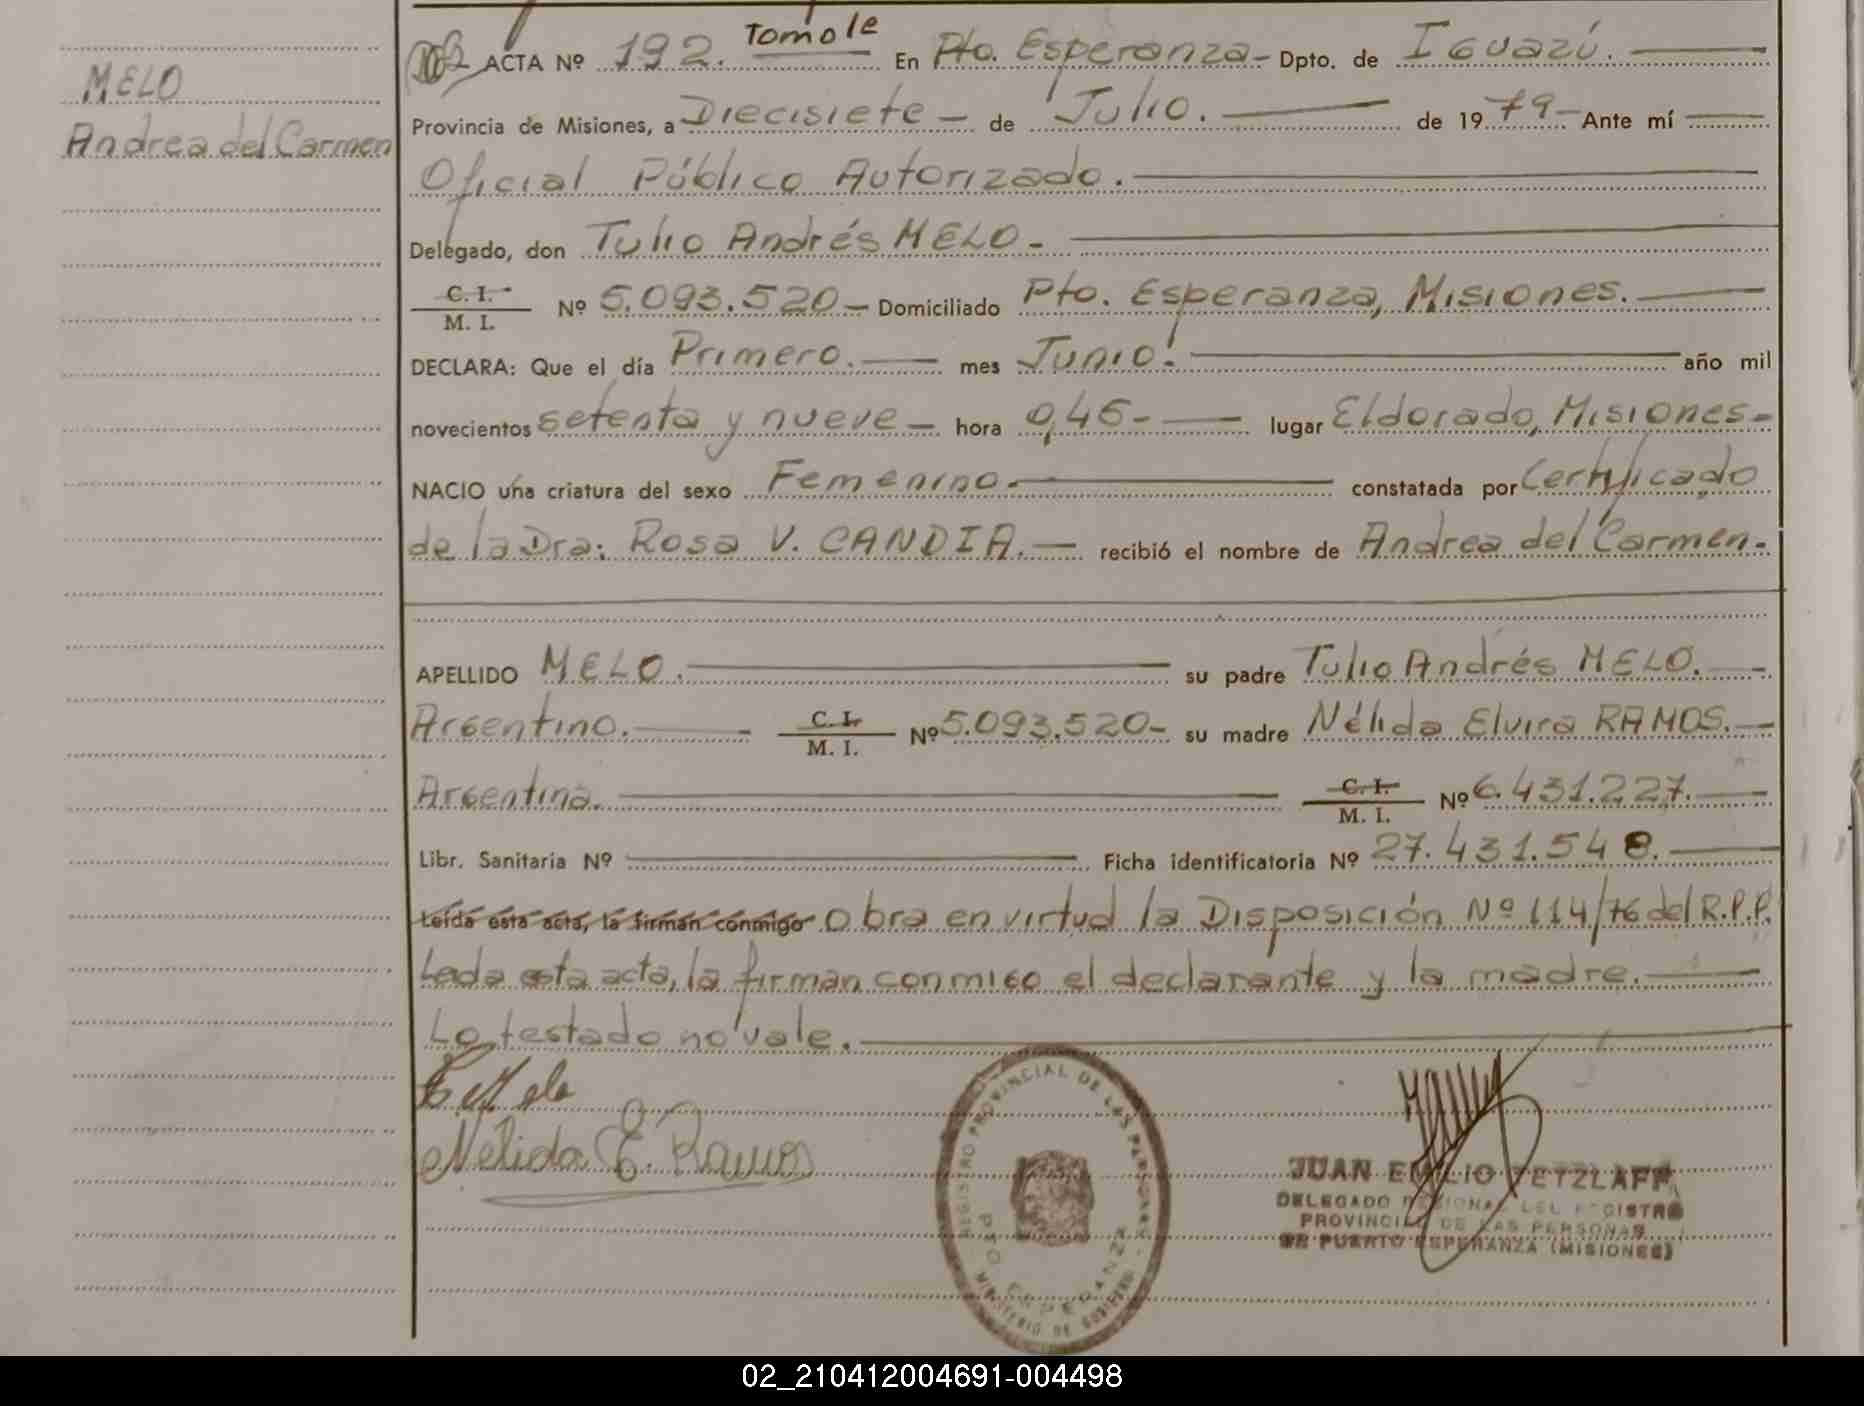 MELO
Andrea del Carmen
ACTA Nº 192. Tomo Ie En Pto. Esperanza- Dpto. de Iguazú.
Provincia de Misiones, a Diecisiete - de Julio. de 1979- Ante mí
Oficial Público Autorizado.
Delegado, don Tulio Andrés MELO-
C. I.
M. I. Nº 5.093.520- Domiciliado Pto. Esperanza, Misiones.
DECLARA: Que el día Primero. mes Junio. año mil
novecientos setenta y nueve- hora 0,45- lugar Eldorado, Misiones-
NACIO una criatura del sexo Femenino. constatada por Certificado
de la Dra: Rosa V. CANDIA. recibió el nombre de Andrea del Carmen.
APELLIDO MELO. su padre Tulio Andrés MELO.
Argentino. C. I.
M. I. Nº 5.093.520- su madre Nélida Elvira RAMOS.
Argentina. C. I.
M. I. Nº 6.431.227.
Libr. Sanitaria Nº Ficha identificatoria Nº 27.431.548.
Leída esta acta, la firman conmigo Obra en virtud la Disposición Nº 114/76 del R.P.P.
Leda esta acta, la firman conmigo el declarante y la madre.
Lo testado no vale.
Nelida E. Ramos
REGISTRO PROVINCIAL DE LAS PERSONAS
PTO ESPERANZA
MINISTERIO DE GOBIERNO
JUAN EMILIO TETZLAFF
DELEGADO REGIONAL DEL REGISTRO
PROVINCIAL DE LAS PERSONAS
DE PUERTO ESPERANZA (MISIONES)
02_210412004691-004498